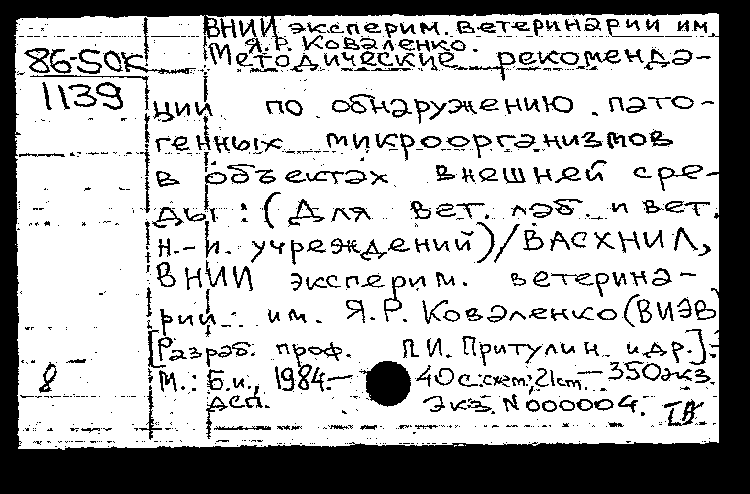 ВНИИ эксперим. ветеринарии им.
Я.Р. Коваленко.
86-50К
Методические рекоменда-
1139
ции по обнаружению пато-
генных микроорганизмов
в объектах внешней сре-
ды : (Для вет. лаб. и вет.
н.-и. учреждений)/ВАСХНИЛ,
ВНИИ эксперим. ветерина-
рии им. Я.Р. Коваленко(ВИЭВ)
[Разраб. проф. П.И. Притулин и др.].-
8 М. : Б.и., 1984.- 40с.:схем;21см. -350экз.
ДСП. Экз. N000004.